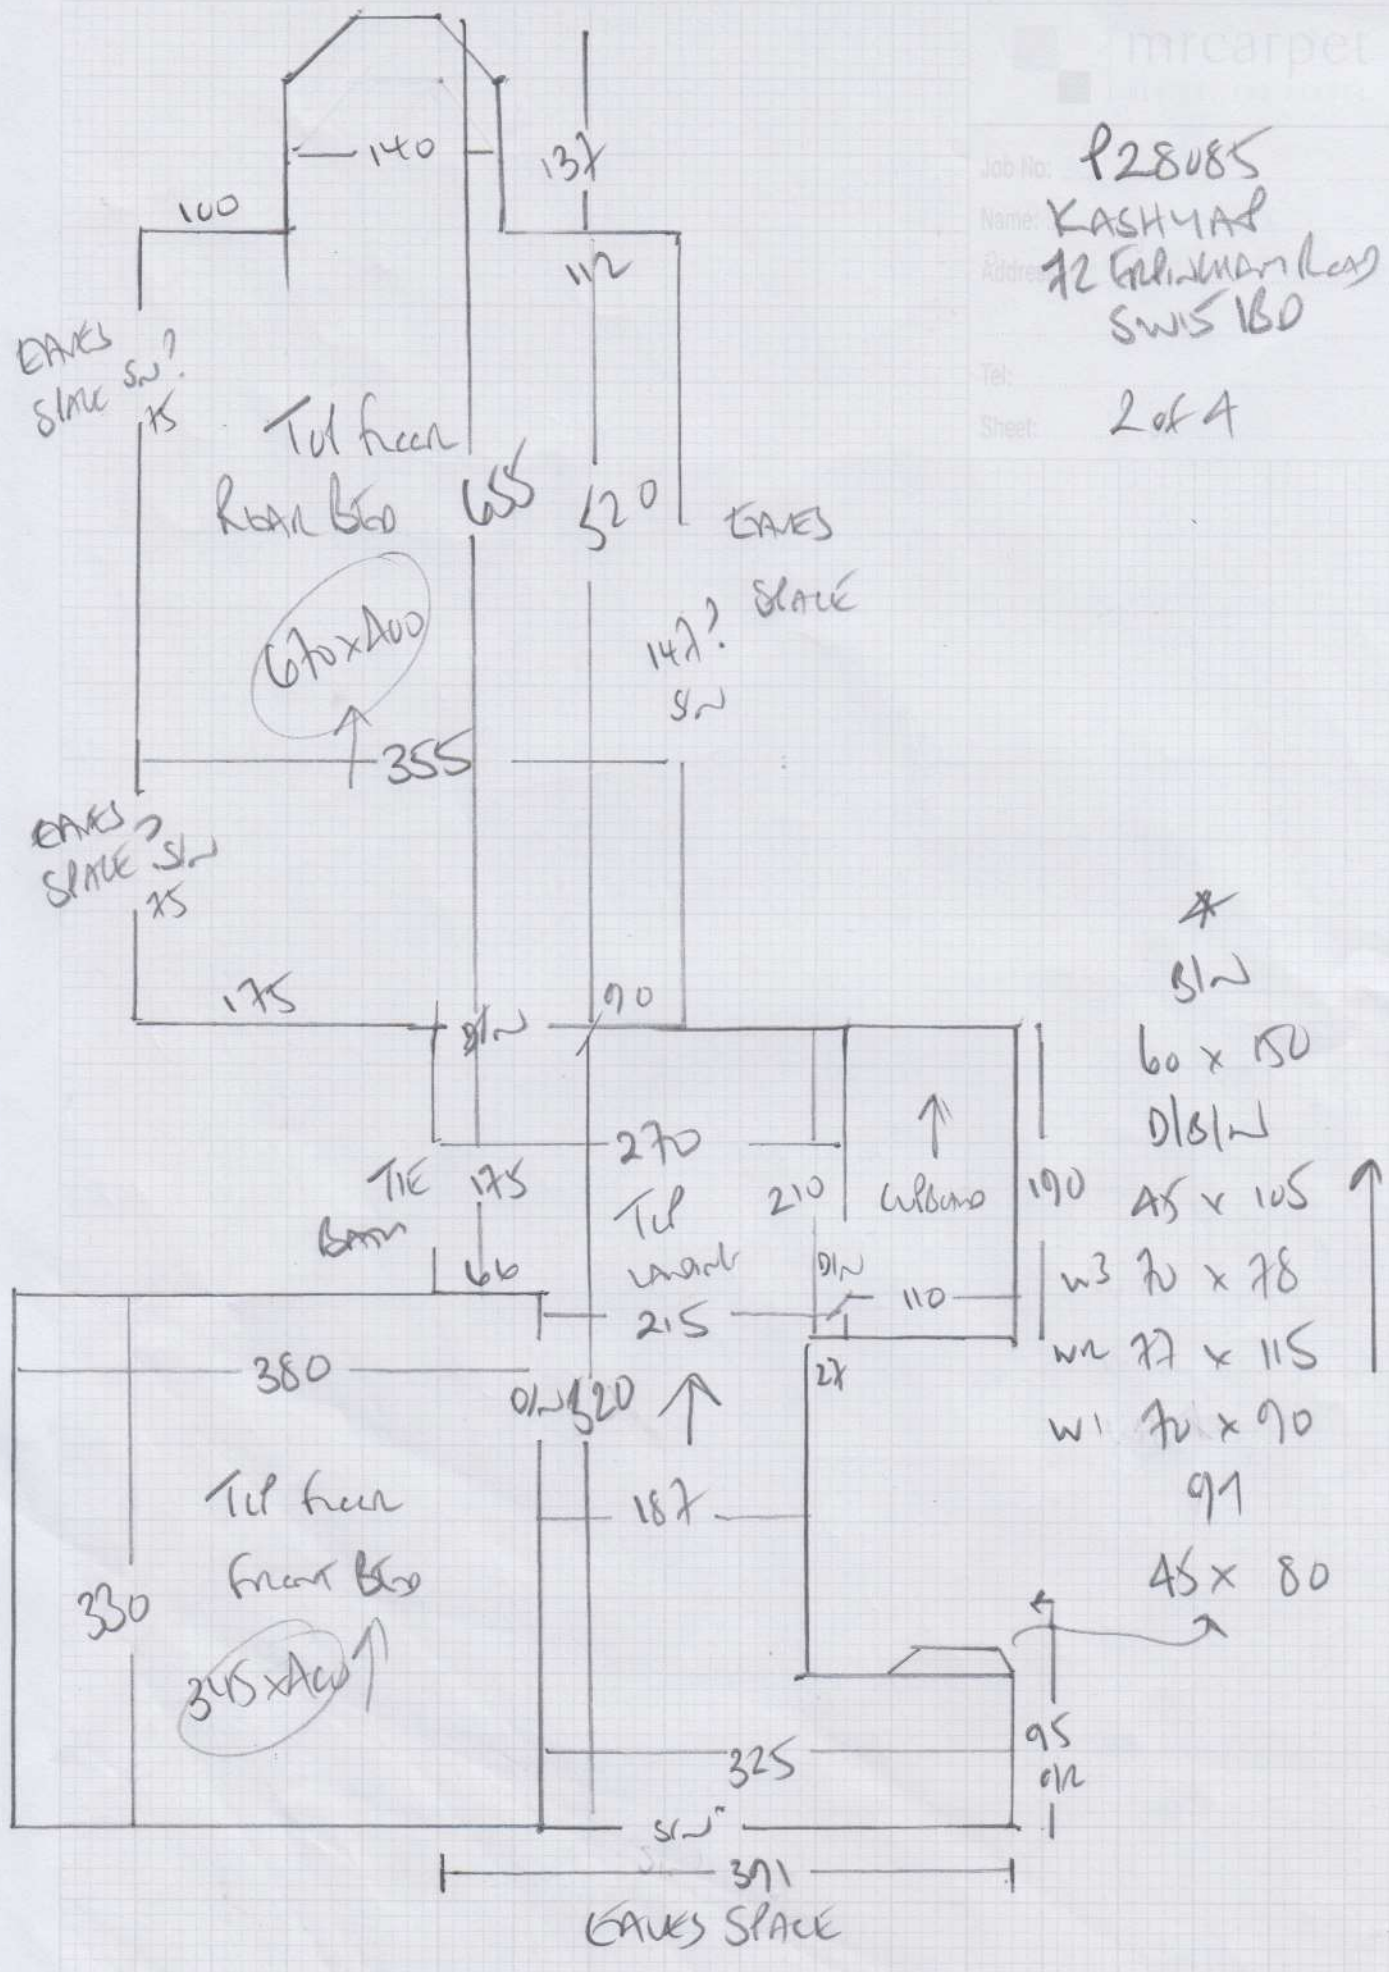 mrcarpet
Job No: P28085
Name: KASHYAP
Address: 72 ERPINGHAM ROAD
SW15 1BD
Tel:
Sheet: 2 of 4
140
137
100
112
EAVES
SPACE S/N?
75
TOP FLOOR
REAR BED
655
520
EAVES
SPACE
670 x 400
147?
S/N
355
EAVES
SPACE? S/N
75
175
D/N
90
270
TILE
BATH
175
66
TOP
LANDING
210
CUPBOARD
190
D/N
110
215
27
380
D/N
520
187
TOP FLOOR
FRONT BED
330
345 x 400
325
95
S/N
391
EAVES SPACE
*
B/N
60 x 150
D/B/N
45 x 105
W3 70 x 78
W2 77 x 115
W1 70 x 90
91
45 x 80